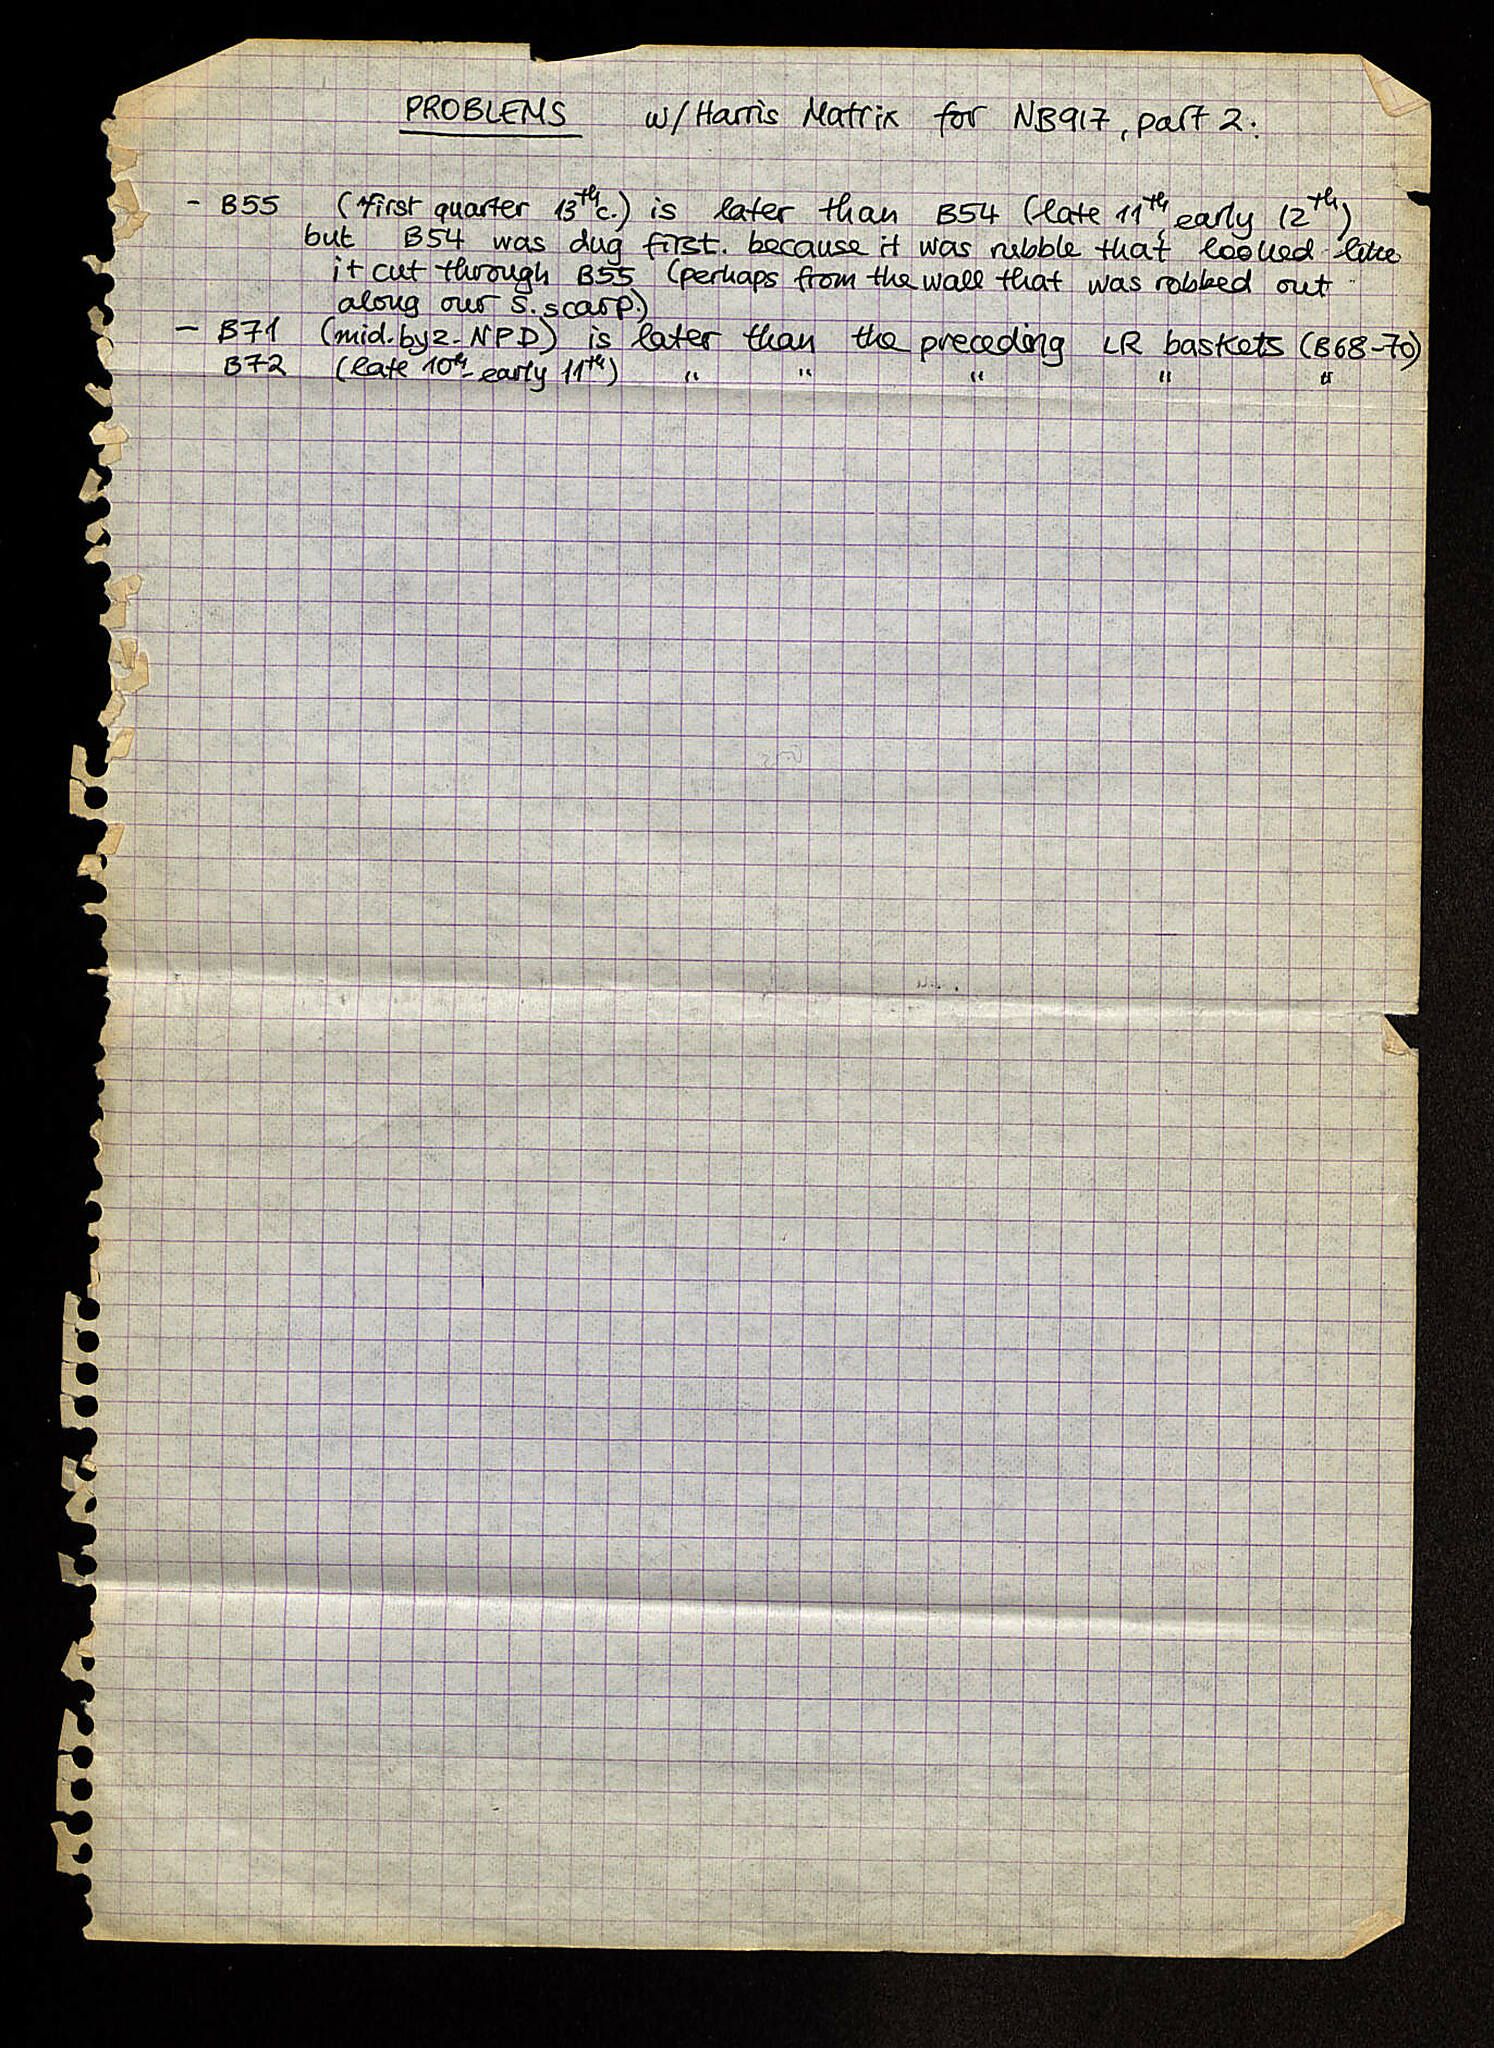 PROBLEMS w/ Harris Matrix for NB917, part 2.
- B55 (first quarter 13th c.) is later than B54 (late 11th, early 12th)
but B54 was dug first. because it was rubble that looked like
it cut through B55 (perhaps from the wall that was robbed out
along our S. scarp.)
- B71 (mid. byz. NPD) is later than the preceding LR baskets (B68-70)
B72 (late 10th - early 11th) " " " " "